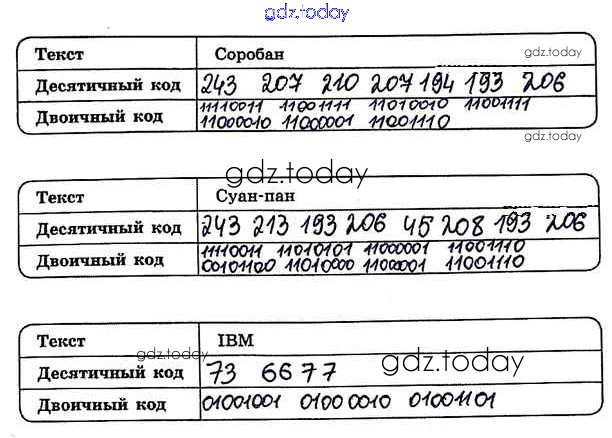 gdz.today
Текст Соробан gdz.today
Десятичный код 243 207 210 207 194 193 206
Двоичный код 11110011 11001111 11010010 11001111
11000010 11000001 11001110 gdz.today
gdz.today
Текст Суан-пан
Десятичный код 243 213 193 206 45 208 193 206
Двоичный код 11110011 11010101 11000001 11001110
00101100 11010000 1100001 11001110
Текст IBM
gdz.today gdz.today
Десятичный код 73 66 77
Двоичный код 01001001 01000010 01001101